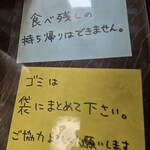 食べ残しの
持ち帰りはできません。
ゴミは
袋にまとめて下さい。
ご協力よろしくお願いします